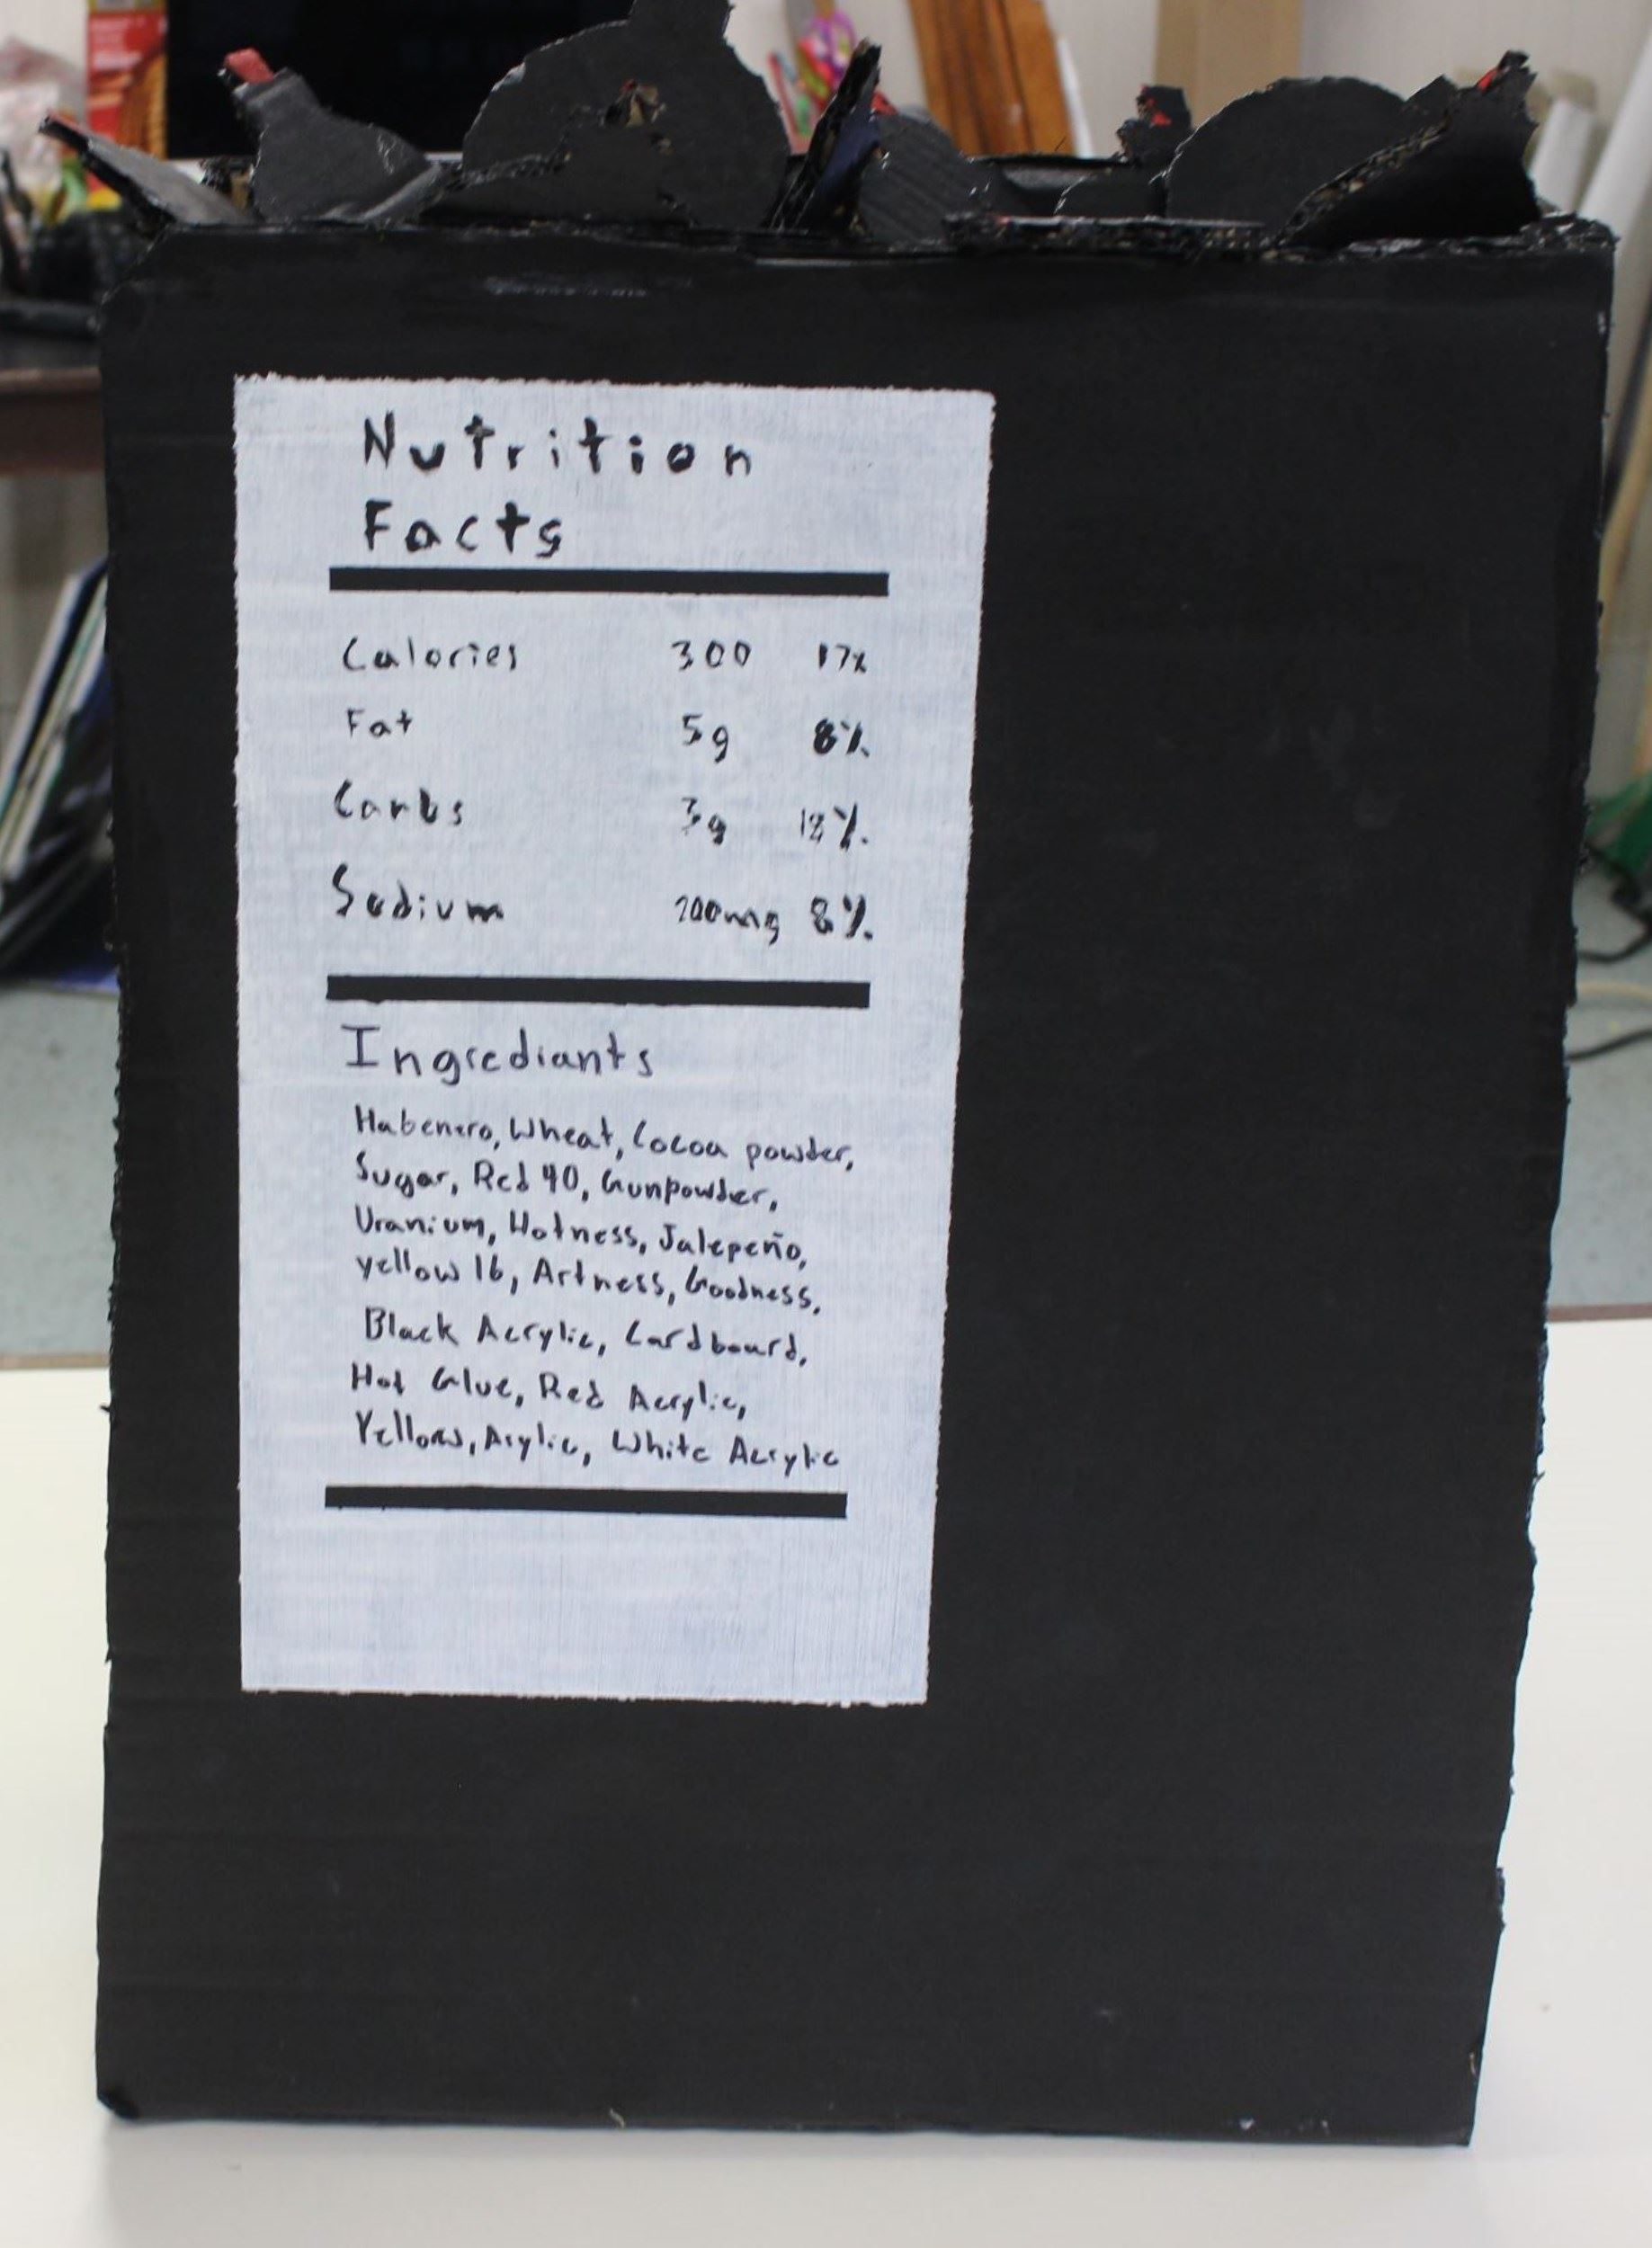 Nutrition
Facts
Calories 300 17%
Fat 5g 8%
Carbs 3g 12%
Sodium 200mg 8%
Ingrediants
Habenero, Wheat, Cocoa powder,
Sugar, Red 40, Gunpowder,
Uranium, Hotness, Jalepeño,
yellow 16, Artness, Goodness,
Black Acrylic, Cardboard,
Hot Glue, Red Acrylic,
Yellow, Arylic, White Acrylic